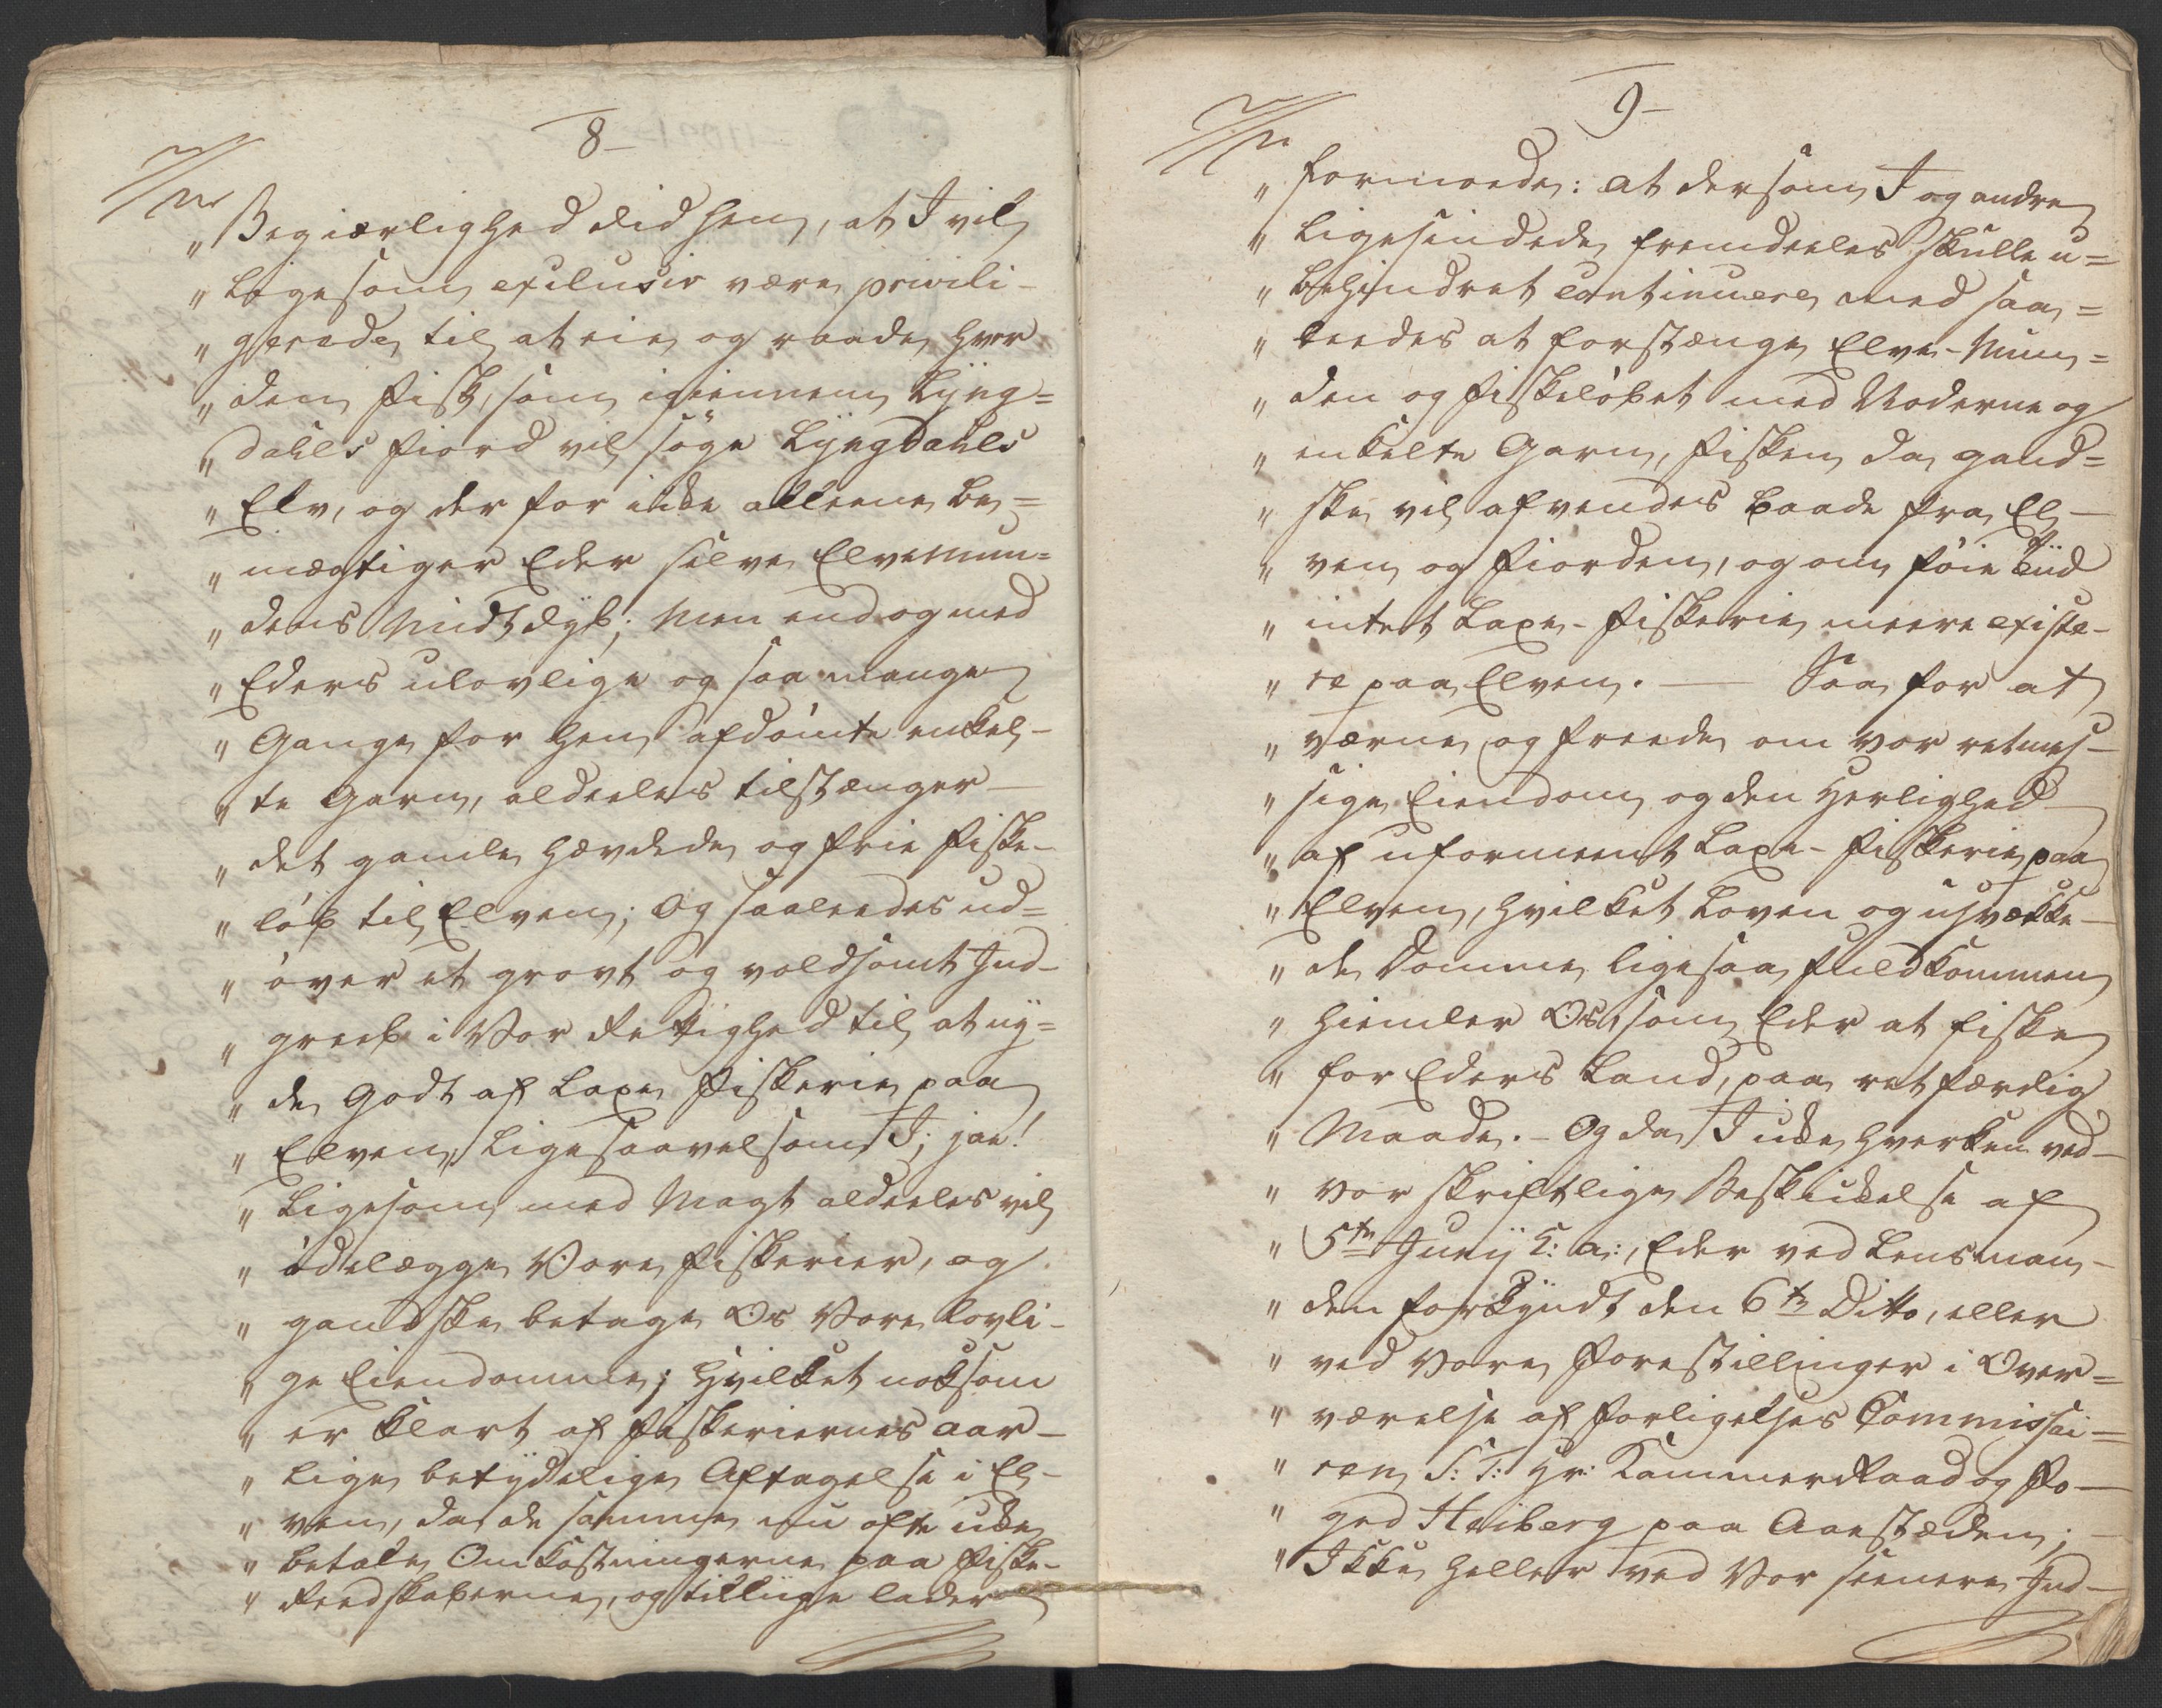 8
„ Begiærlighed did hen, at I vil
„ ligesom exclusiv være privili-
„ gerede til at eie og raade hver
„ den Fisk, som igiennem Lÿng=
„ dahls Fiord vil søge Lÿngdahls
„ Elv, og derfor ikke alleene be=
„ mægtiger Eder selve Elvemun=
„ dens Midtdÿb; men endog med
„ Eders ulovlige og saa mange
„ Gange for hen afdömte enkel-
„ te Garn, aldeeles tilstænger
„ det gamle hævdede og frie Fiske-
„ löb til Elven; og saaleedes ud=
„ över et grovt og voldsomt Ind-
„ greeb i Vor Rettighed til at nÿ=
„ de Godt af Laxe Fiskerie paa
„ Elven, ligesaavelsom I; jae!
„ Ligesom med Magt aldeeles vil
„ ödelægge Vore Fiskerier, og
„ gandske betage Os Vore lovli-
„ ge Eiendomme; Hvilket noksom
„ er klart af Fiskeriernes aar-
„ lige betÿdelige Aftagelse i El-
„ ven, da de samme nu ofte ikke
„ betale Omkostningerne paa Fiske-
„ Reedskaberne, og tillige lader
9
„ formoede: at dersom I og andre
„ Ligesindede fremdeeles skulle u=
„ behindret continuere med saa=
„ leedes at forstænge Elve-Mun=
„ den og Fiskelöbet med Noderne og
„ enkelte Garn, Fisken da gand=
„ ske vil afvendes baade fra El-
„ ven og Fiorden, og om föie Tiid
„ intet Laxe-Fiskerie meere existe-
„ re paa Elven. — Saa for at
„ værne og freede om vor retmes-
„ sige Eiendom og den Herlighed
„ af uformeent Laxe-Fiskerie paa
„ Elven, hvilket Loven og usvække-
„ de Domme ligesaa fuldkommen
„ hiemler Os, som Eder at fiske
„ for Eders Land, paa retfærdig
„ Maade. - Og da I ikke hverken ved
„ vor skriftlige Beskikkelse af
„ 5te Junÿ h: a:, Eder ved Lensman-
„ den forkÿndt den 6te Ditto, eller
„ ved Vore Forestillinger i Over=
„ værelse af Forligelses Commissai=
„ ren S: T: Hr: Kammerraad og Fo-
„ ged Heiberg paa Aaestæden;
„ Ikke heller ved Vor seenere Ind-